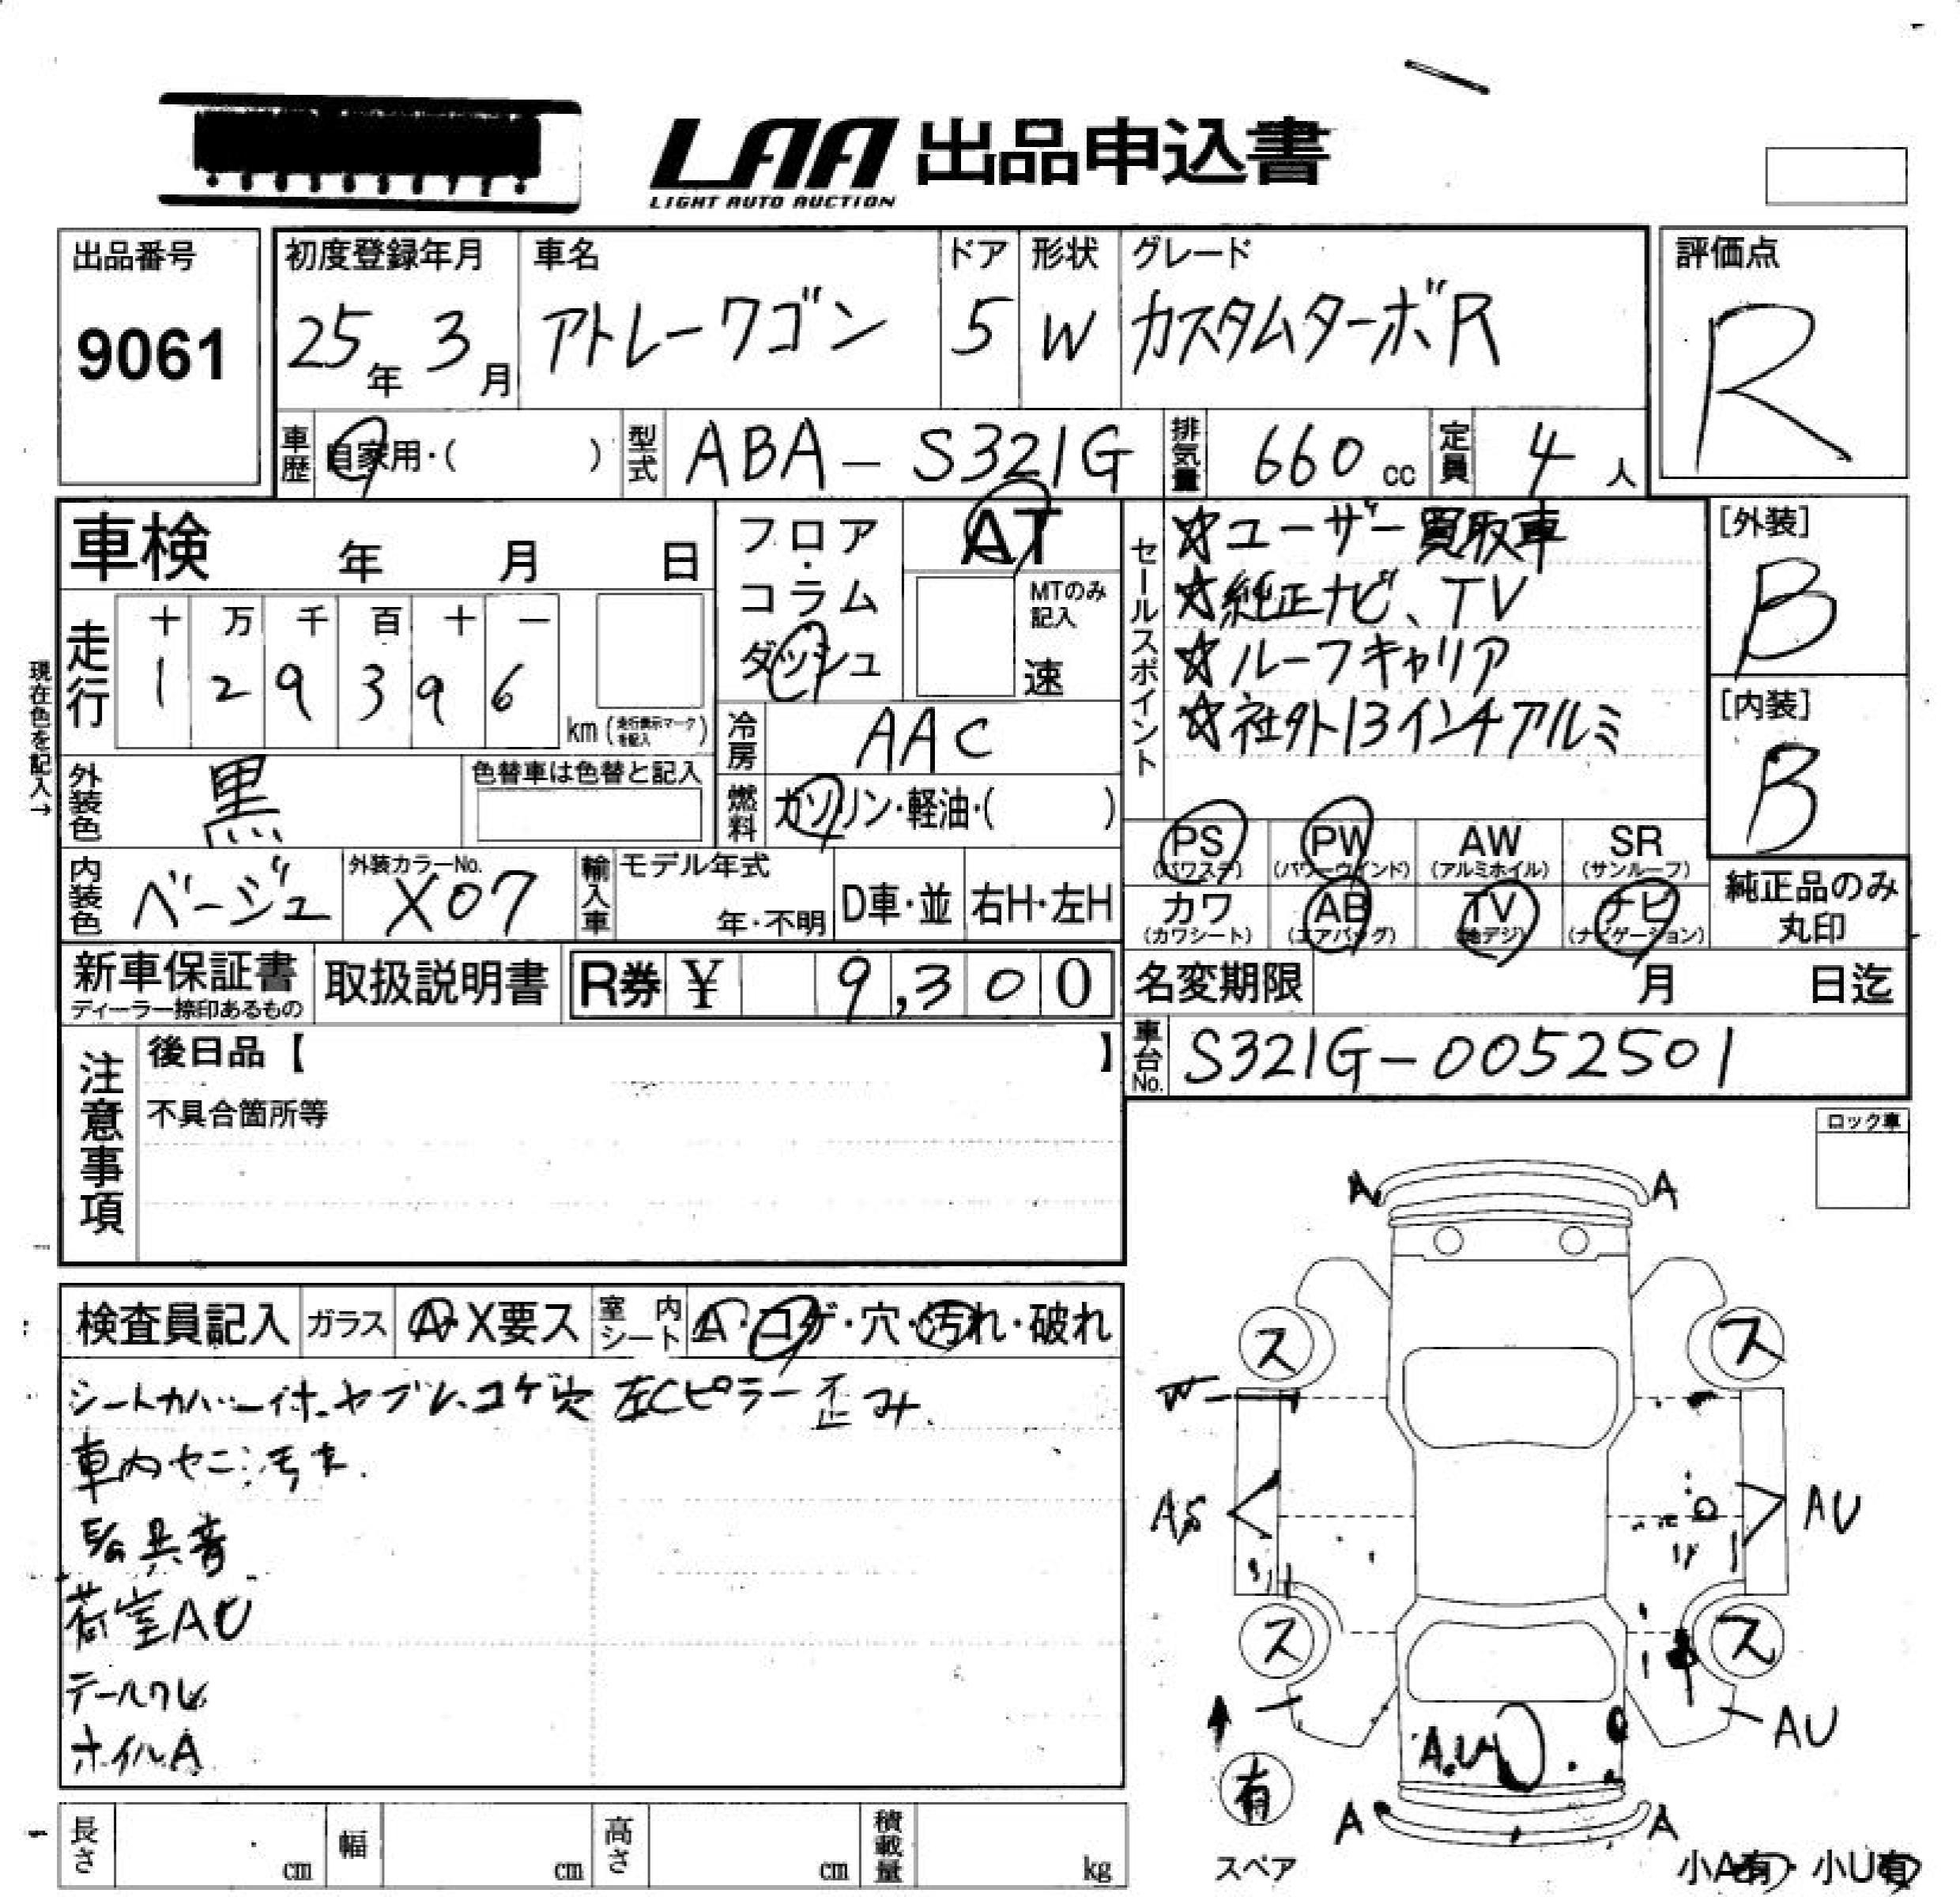 LAA 出品申込書
LIGHT AUTO AUCTION
出品番号
9061
初度登録年月
25年 3月
車名
アトレーワゴン
ドア
5
形状
W
グレード
カスタムターボR
評価点
R
車歴 自家用・( )
型式 ABA-S321G
排気量 660cc
定員 4人
車検 年 月 日
フロア・コラム
ダッシュ
AT
MTのみ記入
速
セールスポイント
☆ユーザー買取車
☆純正ナビ、TV
☆ルーフキャリア
☆社外13インチアルミ
[外装]
B
[内装]
B
現在色を記入→
走行
十 万 千 百 十 一
1 2 9 3 9 6
km (走行表示マークを記入)
冷房 AAC
外装色 黒
色替車は色替と記入
燃料 ガソリン・軽油・( )
PS (パワステ)
PW (パワーウインド)
AW (アルミホイル)
SR (サンルーフ)
カワ (カワシート)
AB (エアバッグ)
TV (地デジ)
ナビ (ナビゲーション)
純正品のみ丸印
内装色 ベージュ
外装カラーNo. X07
輸入車 モデル年式
年・不明
D車・並
右H・左H
新車保証書
ディーラー捺印あるもの
取扱説明書
R券 ¥ 9,300
名変期限 月 日迄
車台No. S321G-0052501
注意事項
後日品【 】
不具合箇所等
ロック車
検査員記入
ガラス A・X要ス
室内シート A・コゲ・穴・汚れ・破れ
シートカバー付 ヤブレ、コゲ穴 左Cピラー歪み
車内ヤニ汚れ
E/G異音
荷室AU
テールワレ
ホイルA
A A
ス ス
W
AS AU
ス ス
AU
A.U
有
スペア
A A
小A有・小U有
長さ cm
幅 cm
高さ cm
積載量 kg